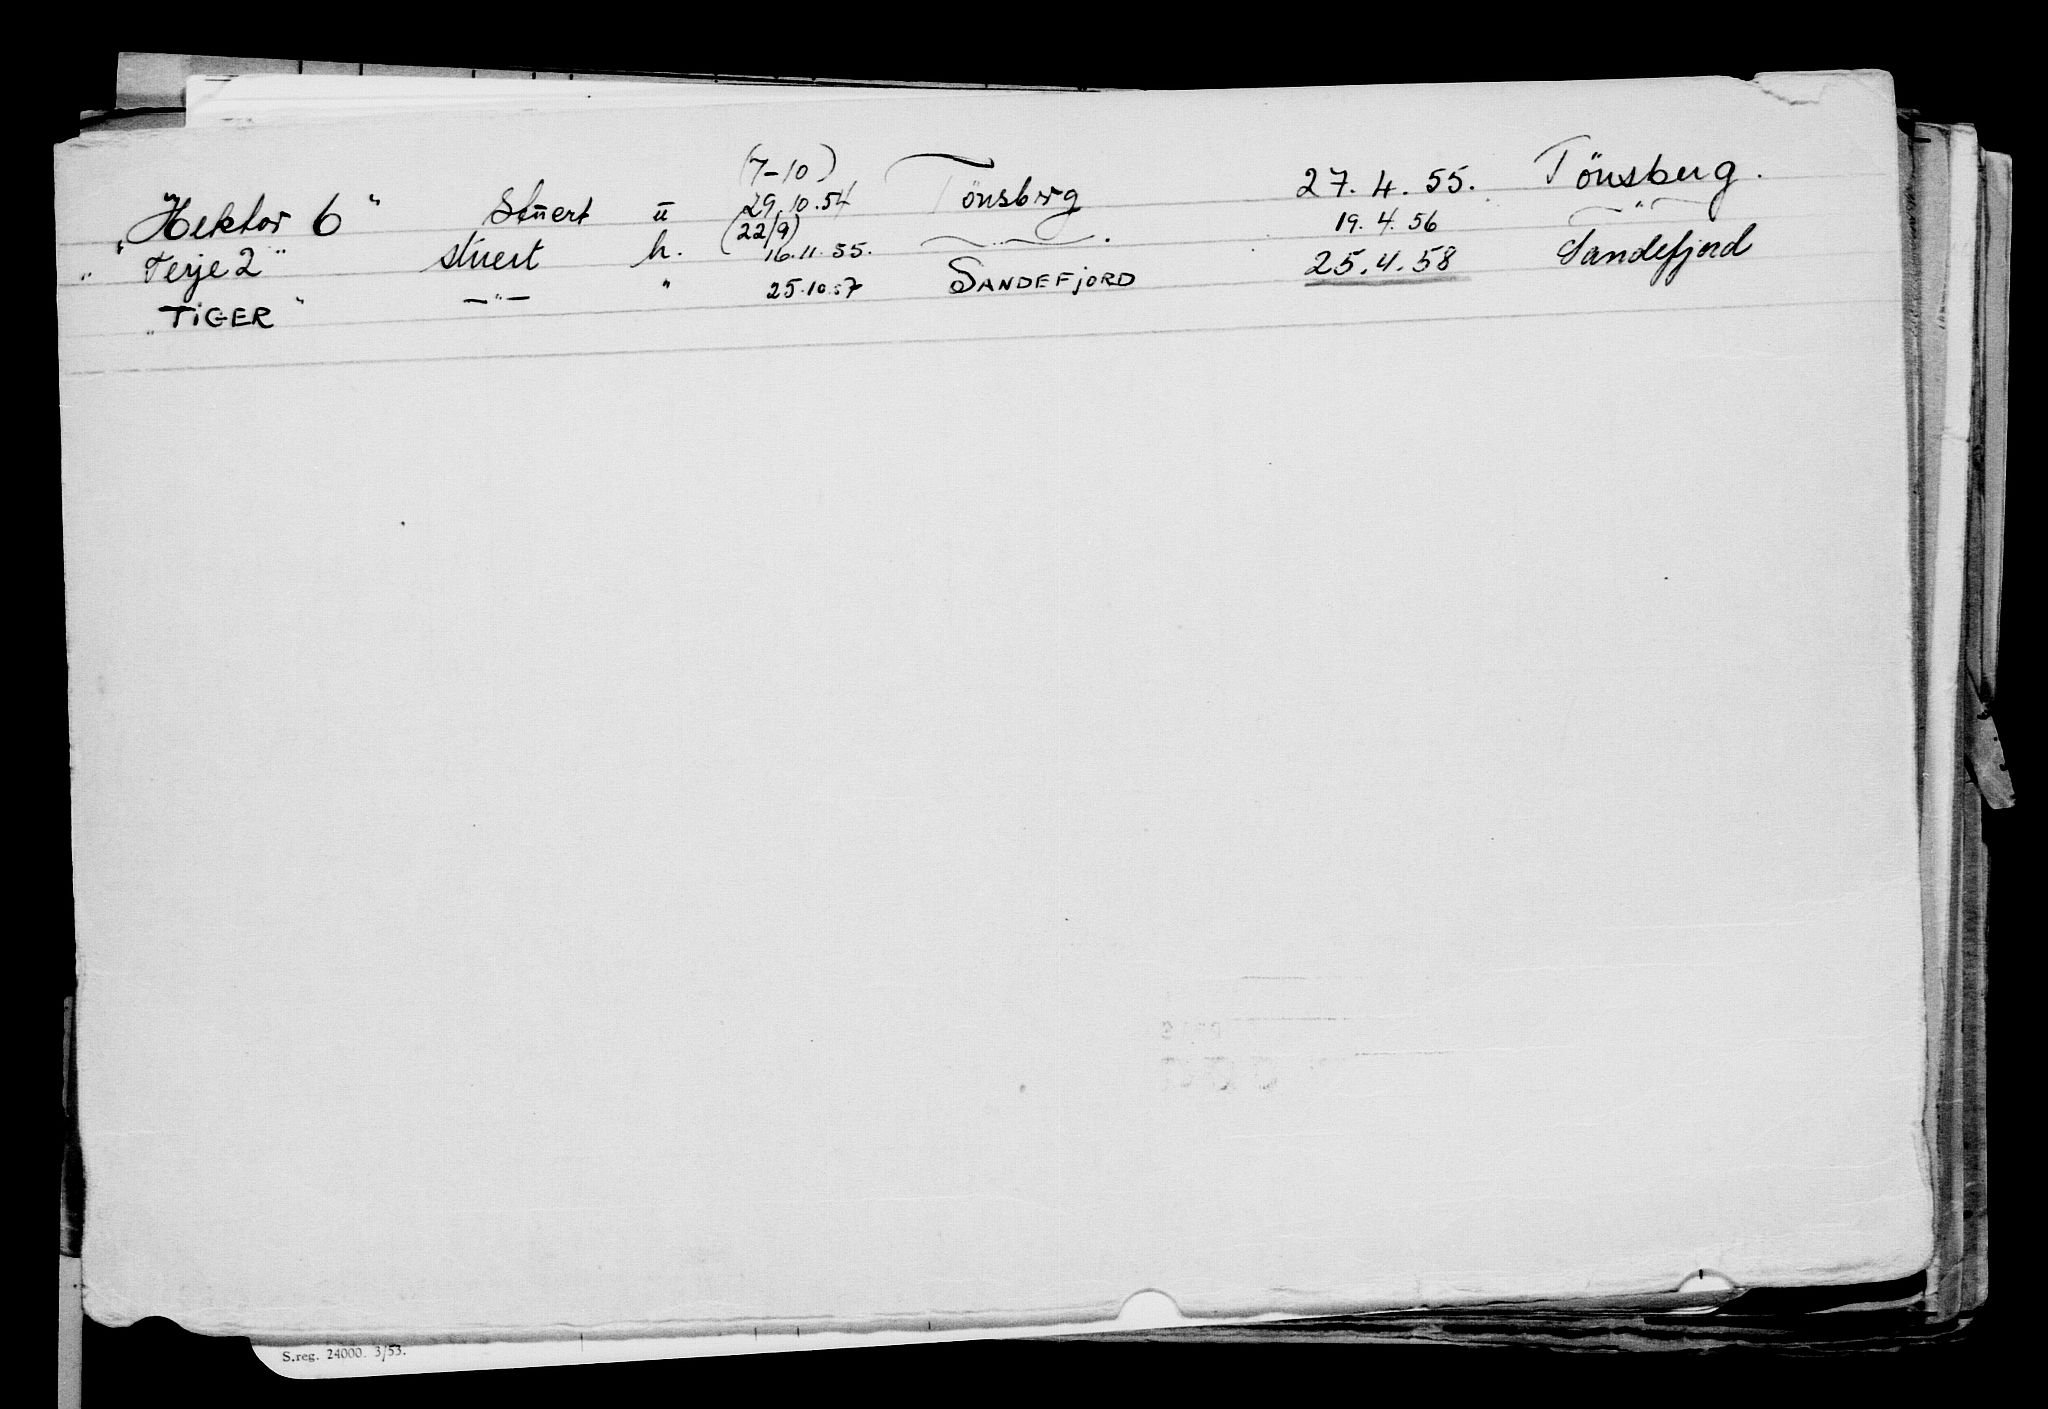 "Hektor 6" Stuert u (7-10) 29.10.54 Tönsberg 27.4.55. Tönsberg.
"Terje 2" stuert h. (22/9) 16.11.55. — " — . 19.4.56 — " —
"TiGER" — " — " 25.10.57 SANDEFjORD 25.4.58 Sandefjord
S.reg. 24000. 3/53.